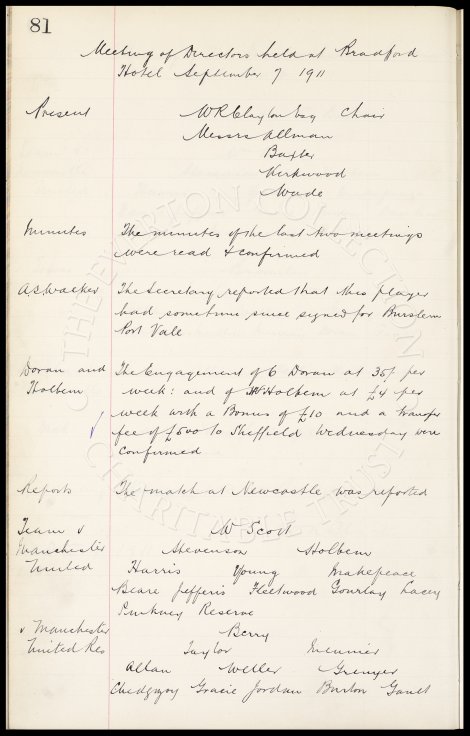 81
Meeting of Directors held at Bradford
Hotel September 7 1911
Present W R Clayton Esq Chair
Messrs Allman
Baxter
Kirkwood
Wade
Minutes The minutes of the last two meetings
were read & confirmed
A.S. Walker The Secretary reported that this player
had sometime since signed for Burslem
Port Vale
Doran and The Engagement of C Doran at 35/ per
Holbem week: and of W Holbem at £4 per
week with a Bonus of £10 and a transfer
fee of £500 to Sheffield Wednesday were
confirmed
Reports The match at Newcastle was reported
Team v W Scott
Manchester Stevenson Holbem
United Harris Young Makepeace
Beare Jefferis Fleetwood Gourlay Lacey
Pinkney Reserve
v Manchester Berry
United Res Taylor Meunier
Allan Weller Grenyer
Chedgzoy Gracie Jordan Burton Gault
THE EVERTON COLLECTION
CHARITABLE TRUST